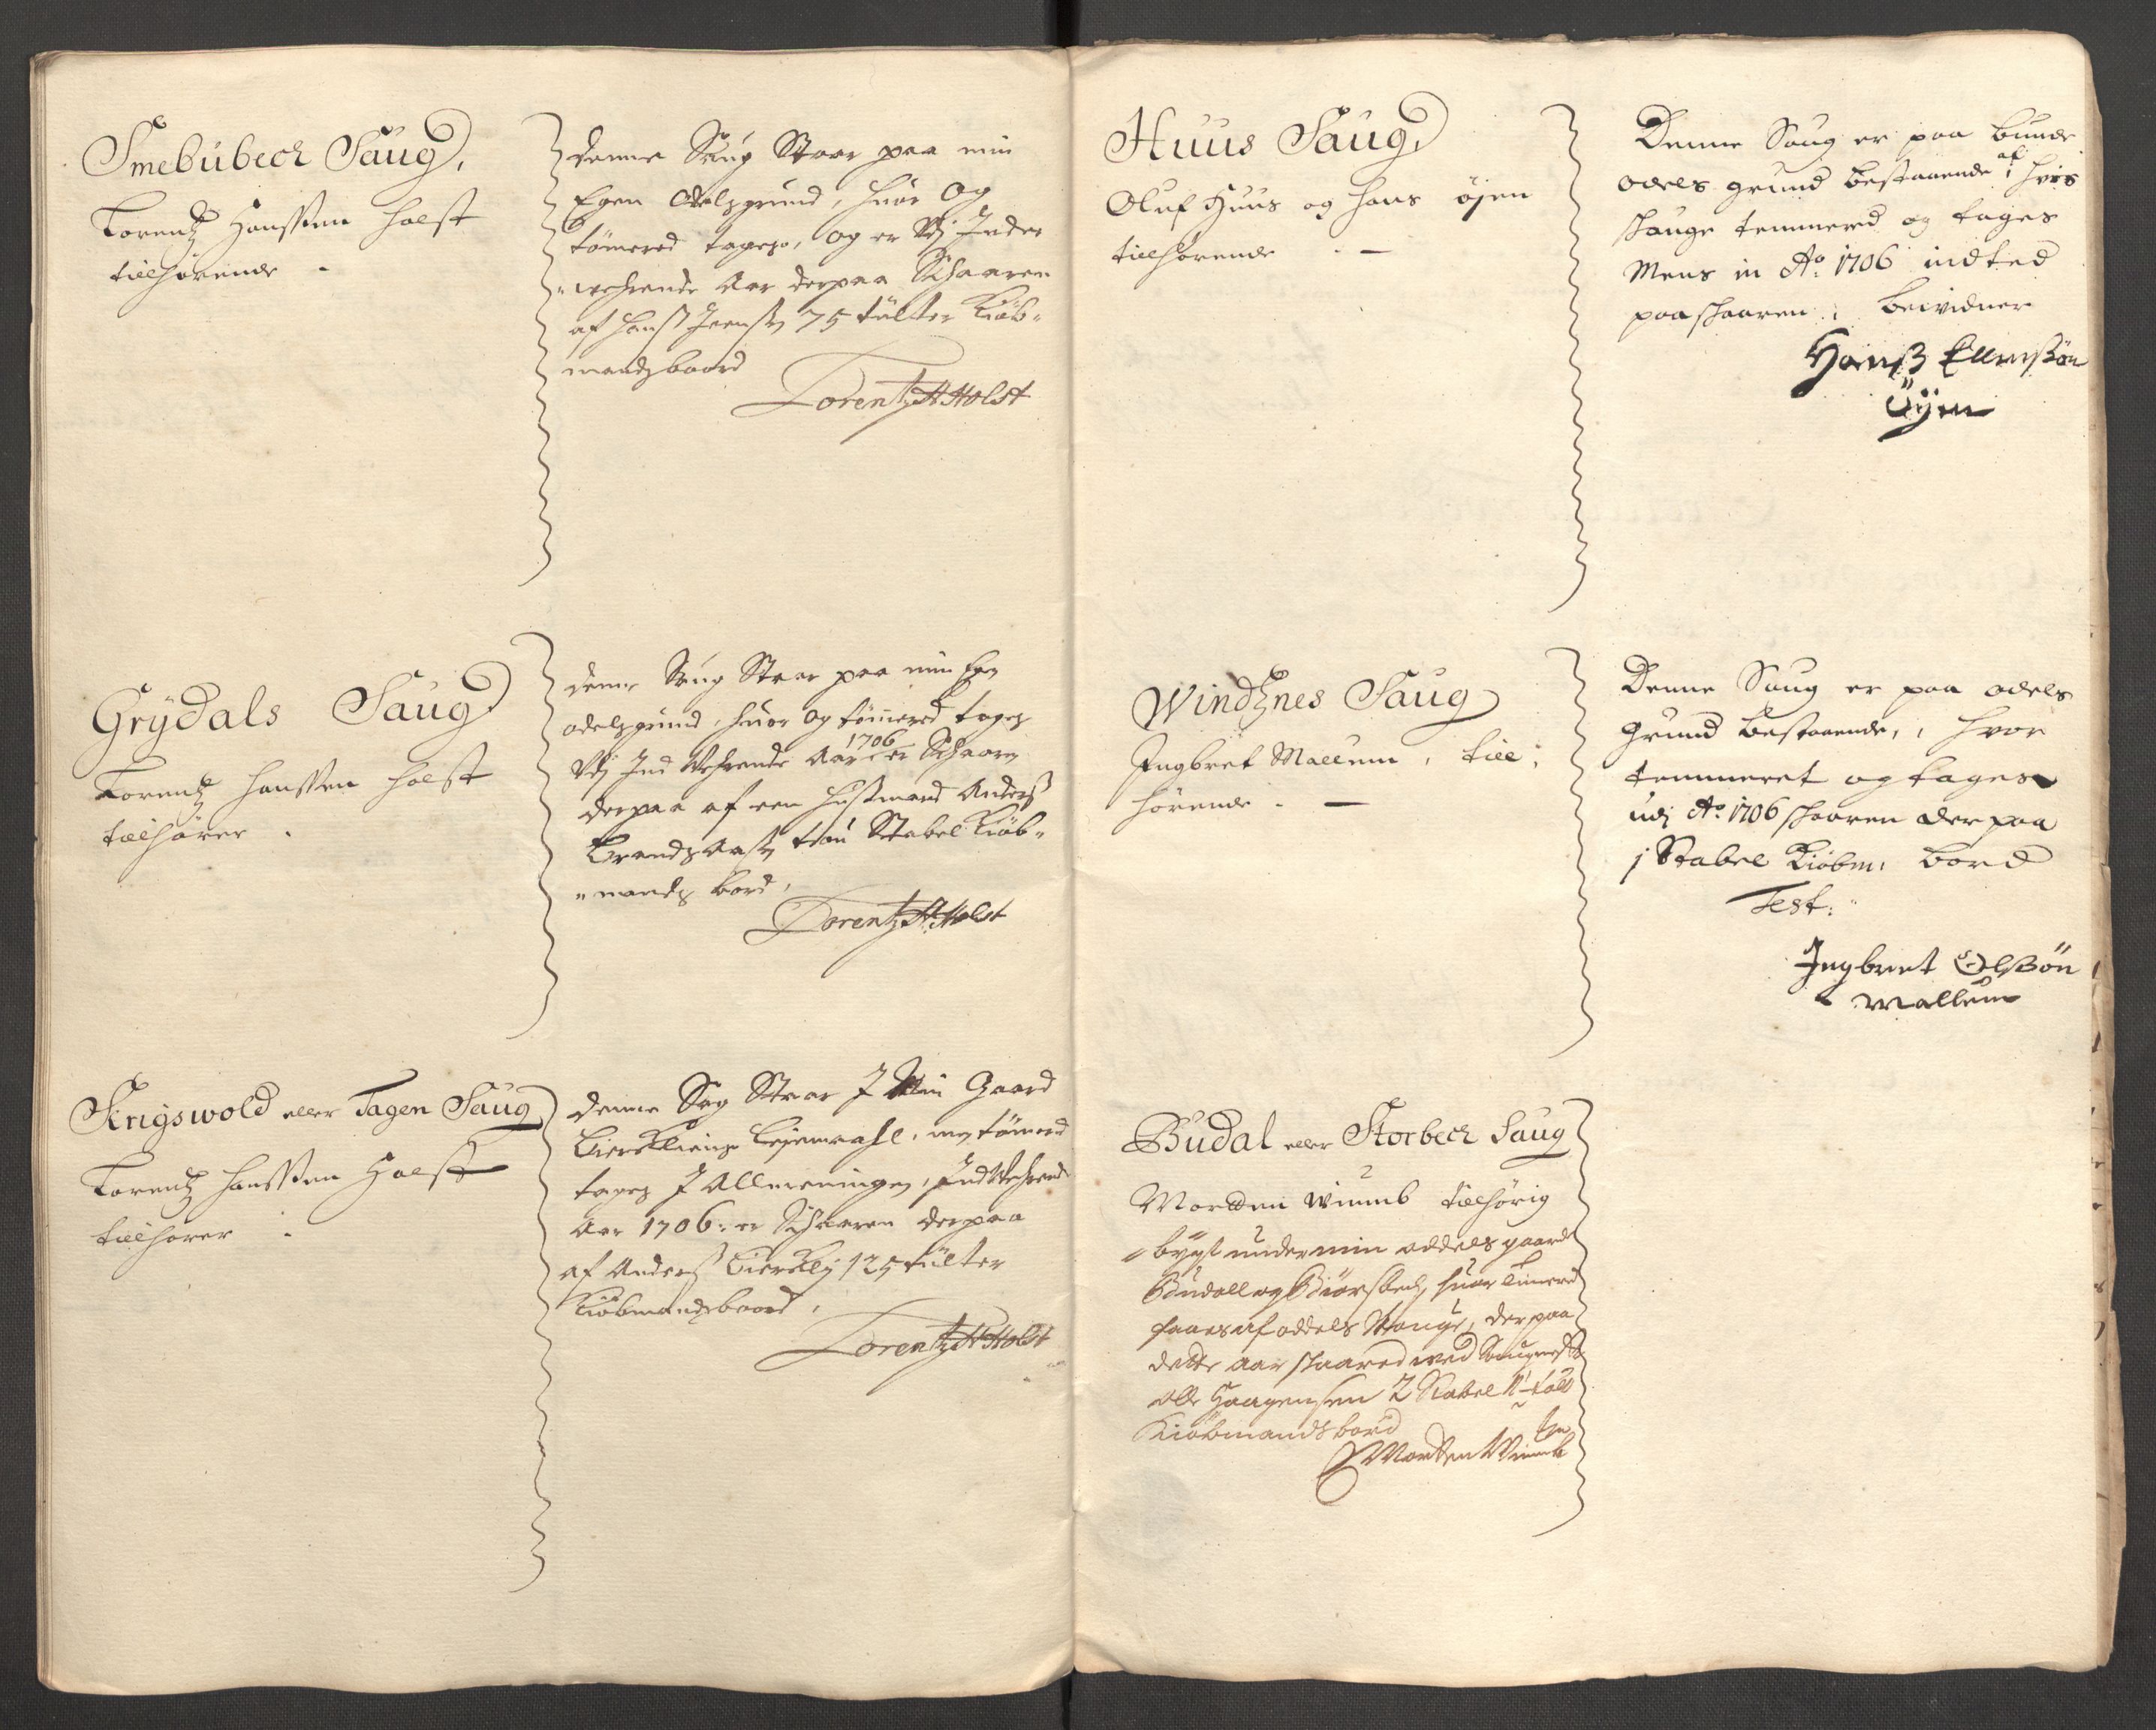 Smebübech Saug,
Lorentz Hansßen Holst
tilhørende -
denne Saug Staar paa min
Egen Odelsgrund, huor og
tömered tages, og er Udj Inde
werende Aar derpaa Schaaren
af Hanß Jensen 75 tülter Kiöb-
mandsboord
Lorentz H Holst
Grÿdals Saug
Lorentz Hansßen Holst
tilhører .
denne Saug Staar paa min Egen
odelsgrund, huor og tömered tages
Udj Ind Wehrende Aar 1706 er Schaaren
derpaa af een Hußmand Anders
tou Stabel Kiöb-
mands bord,
Lorentz H. Holst
Krigswold eller Tagen Saug
Lorentz Hansßen Holst
tilhører .
denne Sag Staar J Min Gaard
mens tömered
tages J Allmeningen, Ind Wehrende
Aar 1706: er Schaaren derpaa
af Anderß 125 tülter
Kiöbmandsboord,
Lorentz H Holst
Huus Saug,
Oluf Huus og Hans öyen
tilhørende . -
Denne Saug er paa bunde
odels grund bestaaende, af hvis
skauge temmered og tages
Mens in Ao. 1706 indted
paa skaaren, bevidner
Hanß Ellenßön
Öÿen
Windznes Saug
Ingbret Mallum, till:
hörende . -
Denne Saug er paa odels
grund bestaaende, hvor
temmeret og tages
udj Ao. 1706 skaaren derpaa
1 Stabel Kiöbm: bord
Test:
Ingbret Olßön
Mallum
Büdal eller Storbech Saug
Morten Winmb tilhörig
bÿgt under min oddels gaarde
Budall og Biörsbech, huor timered
faaes af oddels skauge, derpaa
dette aar skaared med Saugmester
Olle Haagensen 2 Stabel
Kiöbmandsbord
Morten Winmb